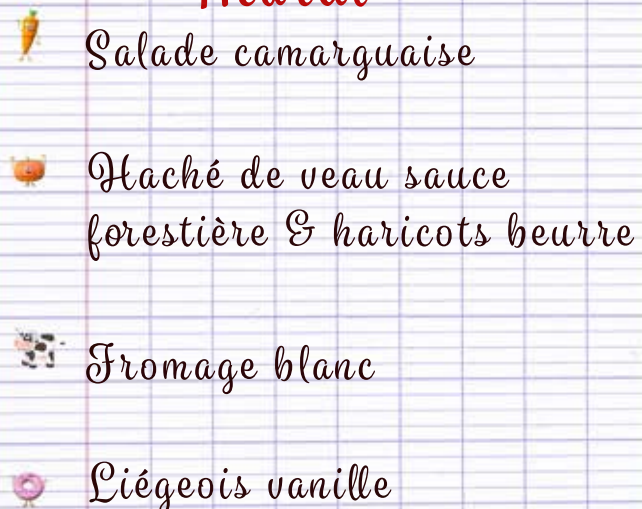 Salade camarguaise
Haché de veau sauce
forestière & haricots beurre
Fromage blanc
Liégeois vanille